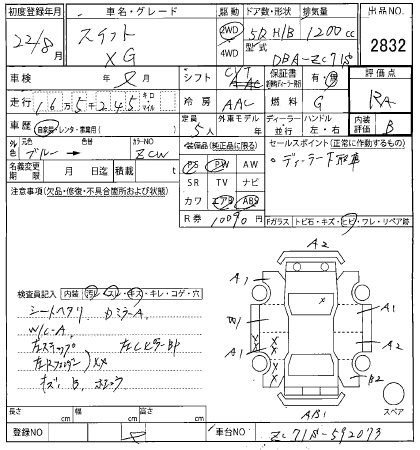 初度登録年月 車名・グレード 駆動 ドア数・形状 排気量 出品NO.
22/8月 スイフト XG 2WD 4WD 5D H/B 1200cc 2832
型式 DBA-ZC71S
車検 月 シフト CVT 保証書 有・無 評価点
走行 16万5千245 キロ マイル 冷房 AAC 燃料 G RA
車歴 自家用・レンタ・事業用( ) 定員 5人 外車モデル 年 ディーラー・並行 ハンドル 左・右 内装評価 B
外色 元色 ブルー 色替 カラーNO ZCW 装備品(純正品に限る) セールスポイント(正常に作動するもの)
名義変更期限 月 日迄 積載 t PS PW AW ・ディーラー下取車
注意事項(欠品・修復・不具合箇所および状態) SR TV ナビ
カワ エアB ABS
R券 10090円 Fガラス トビ石・キズ・ヒビ・ワレ・リペア跡
A2
検査員記入 内装 汚レ・スレ・キズ・キレ・コゲ・穴
シートヘタリ DミラーA
W/C-A
左ステップ 左Cピラー
キズ、B、
A1 W1 A1 A1 A2 B2
AB1
スペア
長さ cm 幅 cm 高さ cm
登録NO 車台NO ZC71S-592073